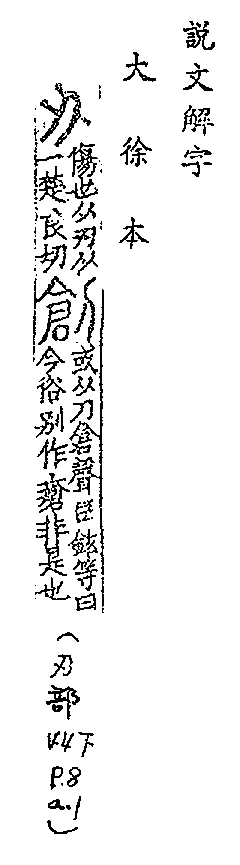 説文解字
大徐本
刅
傷也从刃从
一楚良切
創
或从刀倉聲臣鉉等曰
今俗別作瘡非是也
(刃部
V.4下
P.8
a.1)